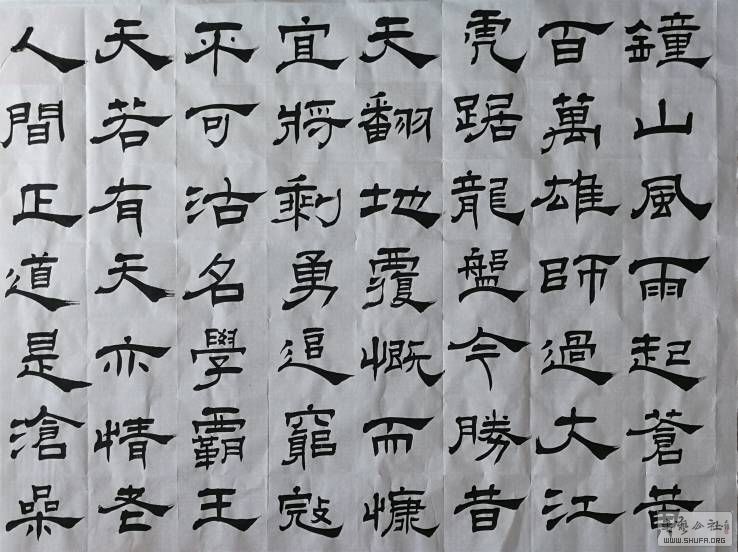 鐘山風雨起蒼
百萬雄師過大江
虎踞龍盤今勝昔
天翻地覆慨而慷
宜將剩勇追窮寇
平可沽名學霸王
天若有天亦情老
人間正道是滄
公社
WWW.SHUFA.ORG